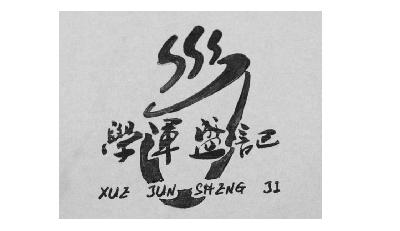 學渾盛記
XUE JUN SHENG JI